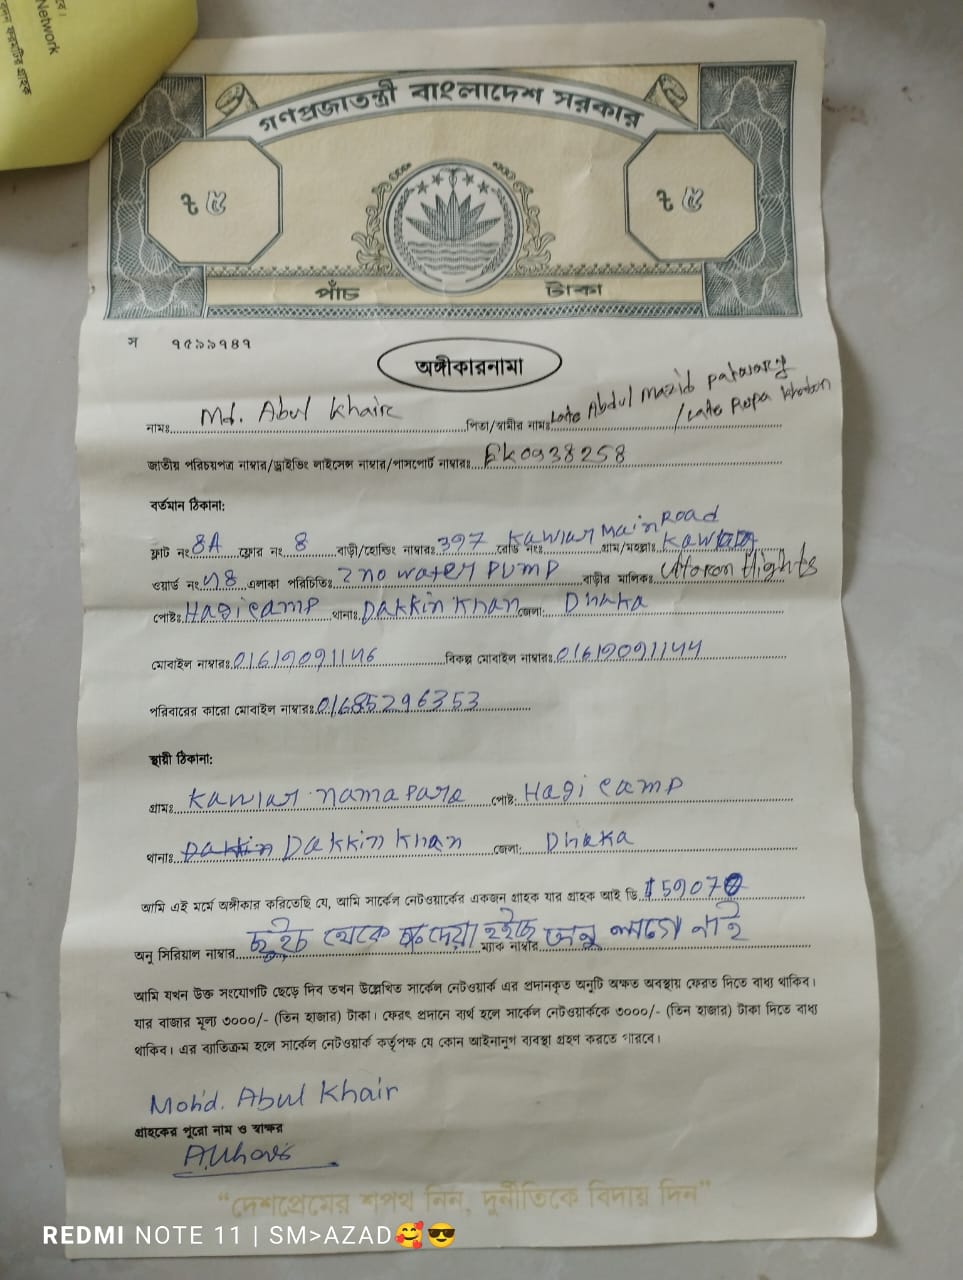 বে।
Network
গণপ্রজাতন্ত্রী বাংলাদেশ সরকার
৳ ৫ ৳ ৫
পাঁচ টাকা
স ৭৫৯৯৭৪৭
অঙ্গীকারনামা
নামঃ Md. Abul Khair পিতা/স্বামীর নামঃ Late Abdul Mazid patwary
/Late Ropa khatun
জাতীয় পরিচয়পত্র নাম্বার/ড্রাইভিং লাইসেন্স নাম্বার/পাসপোর্ট নাম্বারঃ EK0938258
বর্তমান ঠিকানা:
ফ্লাট নং 8A ফ্লোর নং 8 বাড়ী/হোল্ডিং নাম্বারঃ 397 রোড নংঃ Kawlar Main Road গ্রাম/মহল্লাঃ Kawlar
ওয়ার্ড নংঃ 48 এলাকা পরিচিতিঃ 2 no water PUMP বাড়ীর মালিকঃ Hights
পোষ্টঃ Hagicamp থানাঃ Dakkin Khan জেলা: Dhaka
মোবাইল নাম্বারঃ 01619091146 বিকল্প মোবাইল নাম্বারঃ 01619091144
পরিবারের কারো মোবাইল নাম্বারঃ 01685296353
স্থায়ী ঠিকানা:
গ্রামঃ Kawlar namapara পোষ্ট: Hagi camp
থানাঃ Dakkin Dakkin Khan জেলা: Dhaka
আমি এই মর্মে অঙ্গীকার করিতেছি যে, আমি সার্কেল নেটওয়ার্কের একজন গ্রাহক যার গ্রাহক আই ডি
অনু সিরিয়াল নাম্বার সুইচ থেকে দেয়া হইছে ম্যাক নাম্বার অনু লাগে নাই
আমি যখন উক্ত সংযোগটি ছেড়ে দিব তখন উল্লেখিত সার্কেল নেটওয়ার্ক এর প্রদানকৃত অনুটি অক্ষত অবস্থায় ফেরত দিতে বাধ্য থাকিব।
যার বাজার মূল্য ৩০০০/- (তিন হাজার) টাকা। ফেরৎ প্রদানে ব্যর্থ হলে সার্কেল নেটওয়ার্ককে ৩০০০/- (তিন হাজার) টাকা দিতে বাধ্য
থাকিব। এর ব্যাতিক্রম হলে সার্কেল নেটওয়ার্ক কর্তৃপক্ষ যে কোন আইনানুগ ব্যবস্থা গ্রহণ করতে পারবে।
Mohd. Abul Khair
গ্রাহকের পুরো নাম ও স্বাক্ষর
“দেশপ্রেমের শপথ নিন, দুর্নীতিকে বিদায় দিন”
REDMI NOTE 11 | SM>AZAD🥰😎